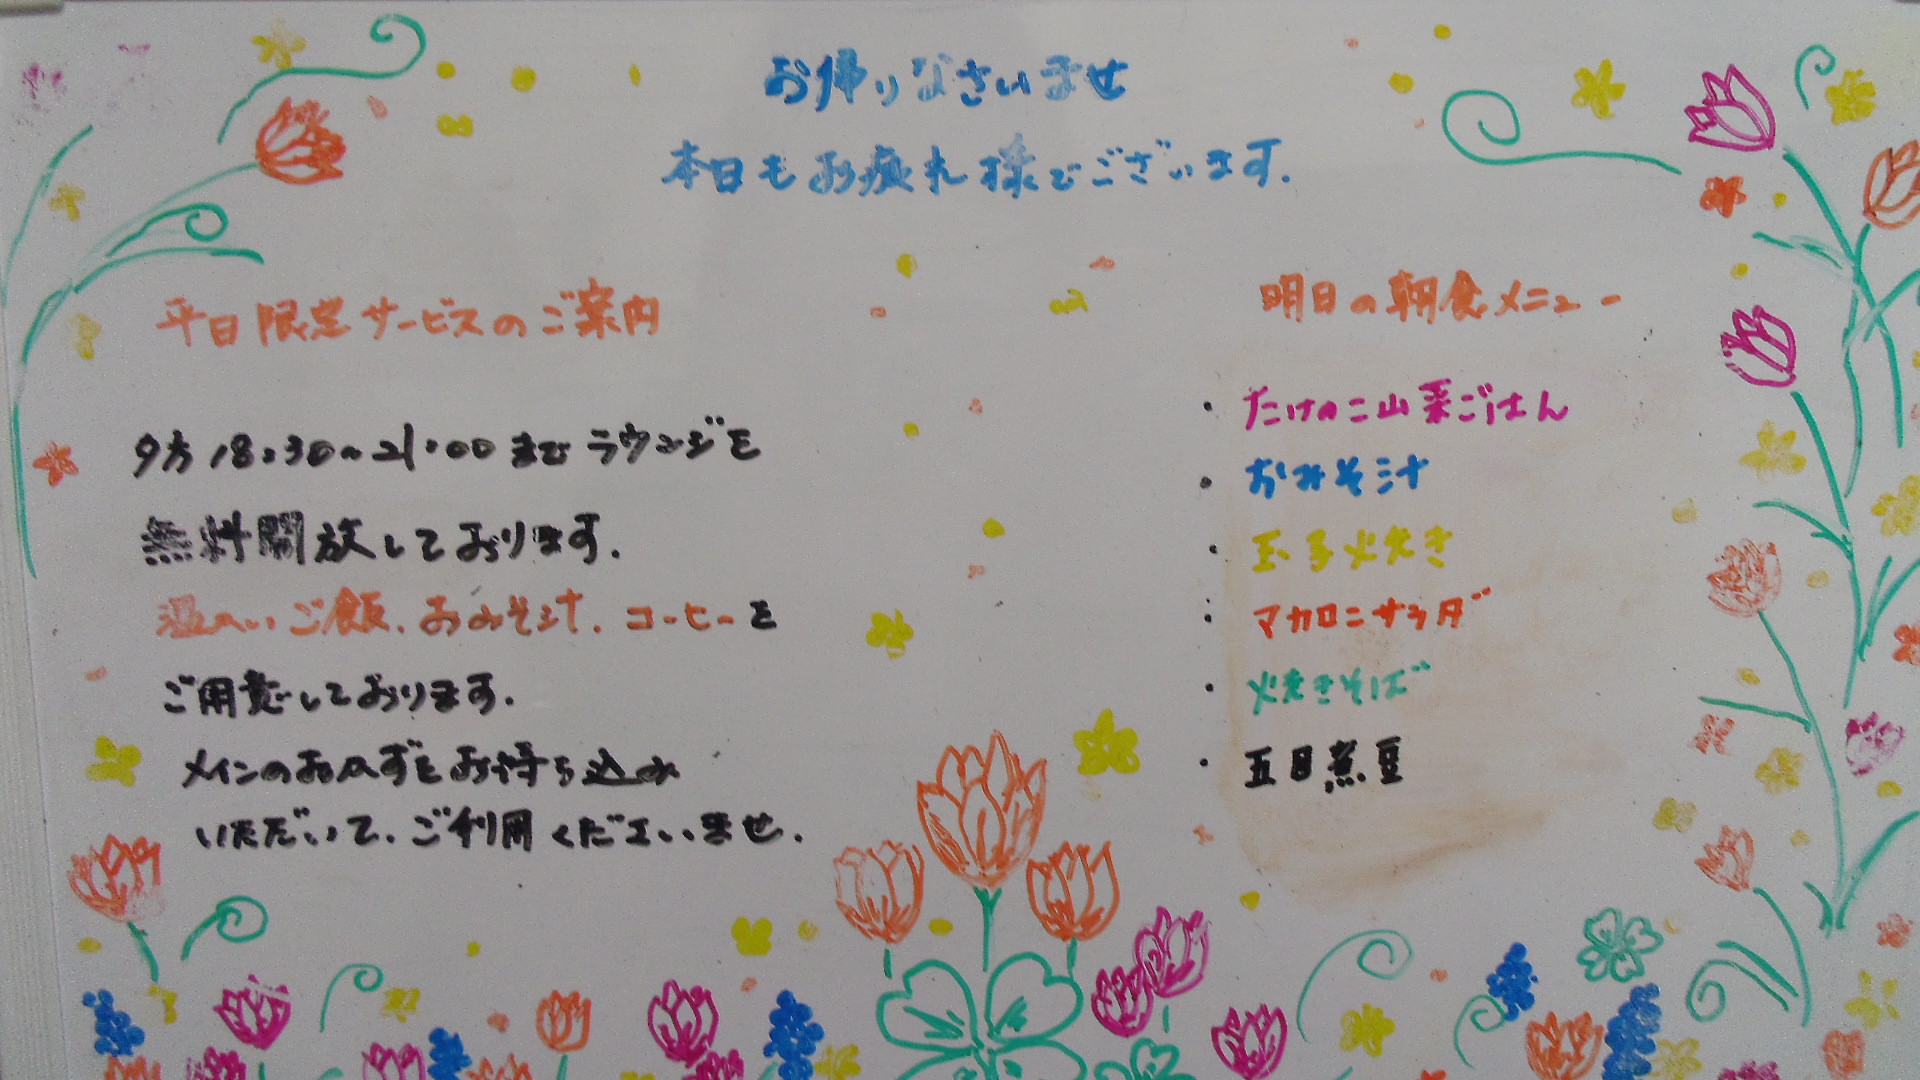 お帰りなさいませ
本日もお疲れ様でございます.
平日限定サービスのご案内
夕方18:30~21:00までラウンジを
無料開放しております.
温かいご飯、おみそ汁、コーヒーを
ご用意しております.
メインのおかずをお持ち込み
いただいて、ご利用くださいませ.
明日の朝食メニュー
・たけのこ山菜ごはん
・おみそ汁
・玉子焼き
・マカロニサラダ
・焼きそば
・五目煮豆